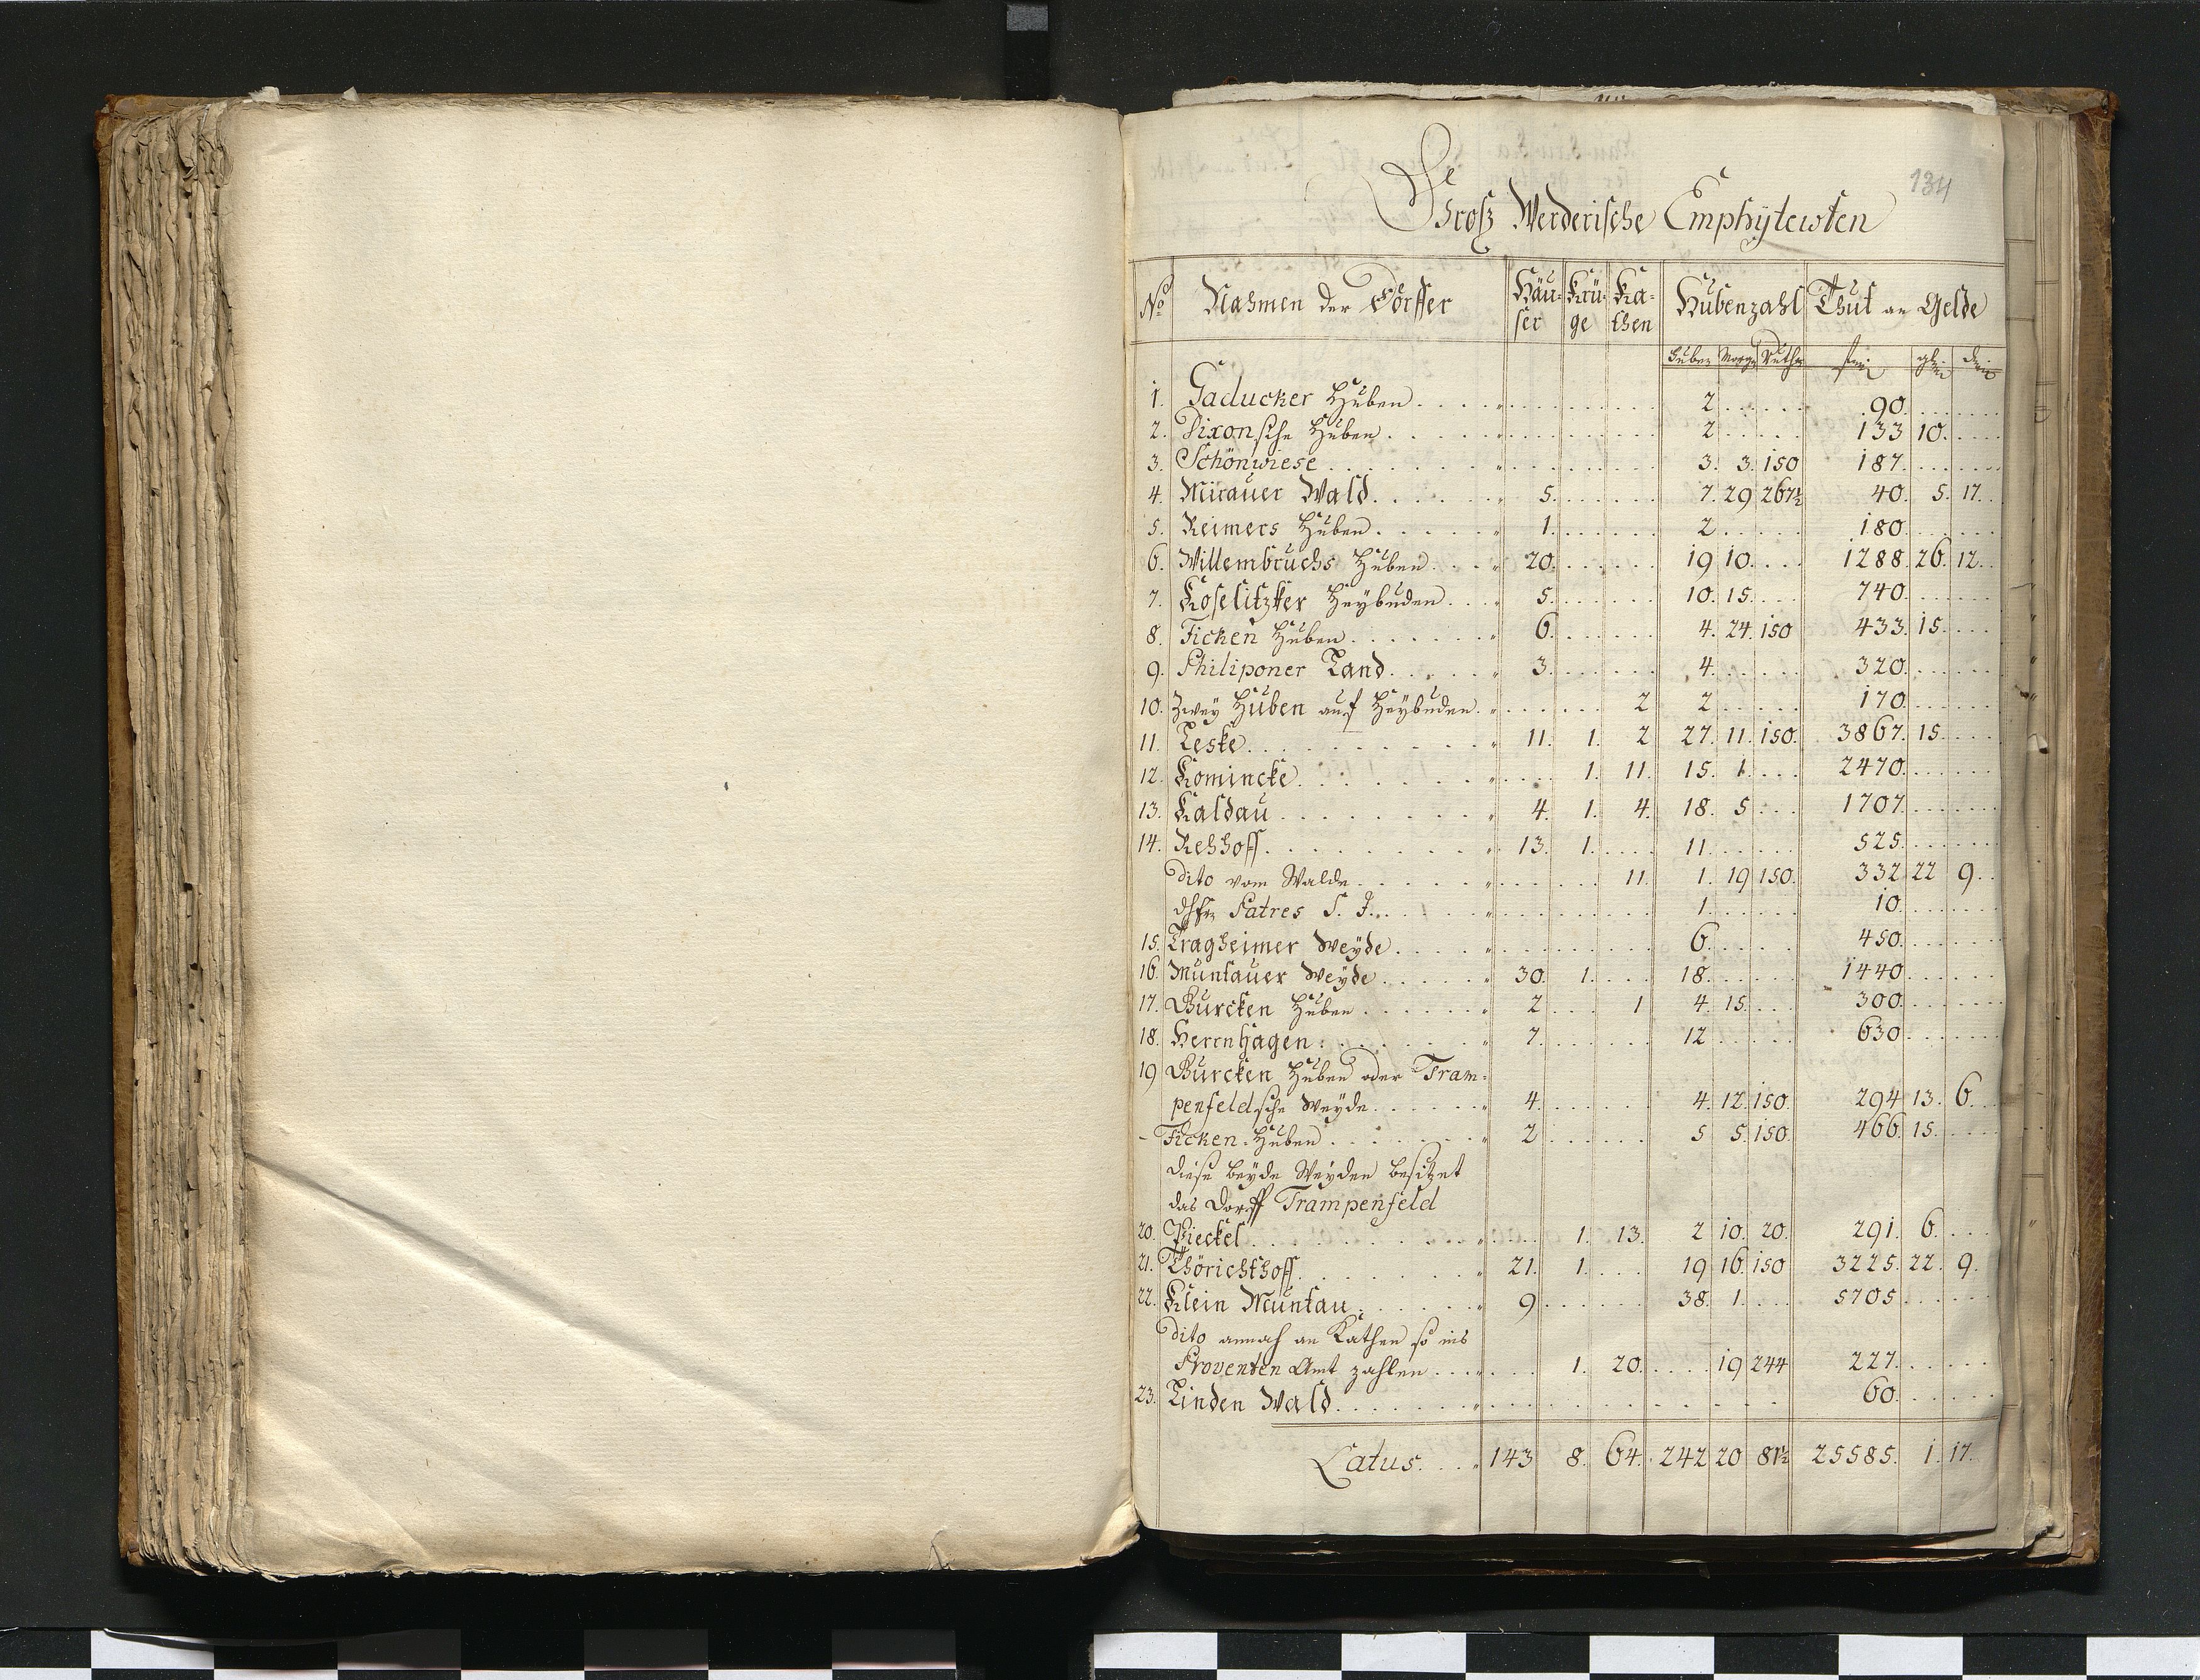 134
Groß Werderische Emphÿtewten
No Nahmen der Dörffer Häu- Krü- Ka- Hubenzahl Thut an Gelde
ser ge then
Huben Morg Ruth
1. Gaducker Huben . . . . 2 . . . . . 90. . . . . .
2. Dixonsche Huben . . . . 2 . . . . . 133 10. . . . .
3. Schönwiese . . . . . . 3. 3. 150 187. . . . . .
4. Mirauer Wald . . . . . 5. . . . . 7. 29 267½ 40. 5. 17.
5. Reimers Huben . . . . . 1. . . . . 2 . . . . 180. . . . .
6. Willembruchs Huben . . . 20. . . . . 19 10. . . . 1288. 26. 12.
7. Koselitzker Heÿbuden . . . 5. . . . . 10. 15. . . . 740. . . . .
8. Ficken Huben . . . . . . 6. . . . . 4. 24. 150 433. 15. . . .
9. Philiponer Land . . . . . 3. . . . . 4. . . . . 320. . . . .
10. Zweÿ Huben auf Heÿbuden . . . . . 2 2 . . . . . 170. . . . .
11. Leske . . . . . . . . . 11. 1. 2 27. 11. 150. 3867. 15. . . .
12. Komincke . . . . . . . . . . . 1. 11. 15. 1. . . . 2470. . . . .
13. Kaldau . . . . . . . . 4. 1. 4. 18. 5 . . . 1707. . . . .
14. Rehhoff . . . . . . . . 13. 1. . . . 11. . . . . 525. . . . .
dito vom Walde . . . . . . . . . 11. 1. 19 150. 332 22 9.
Patres S. J. . . . . . . . . 1. . . . . 10. . . . .
15. Tragheimer Weÿde . . . . . . . . 6. . . . . 450. . . . .
16. Muntauer Weÿde . . . . . 30. 1. . . . 18. . . . . 1440. . . . .
17. Burcken Huben . . . . . 2 . . . 1 4. 15. . . . 300. . . . .
18. Herrnhagen . . . . . . 7. . . . . 12 . . . . . 630. . . . .
19 Burcken Huben oder Tram-
penfeldsche Weÿde . . . . . 4. . . . . 4. 12. 150. 294 13. 6.
- Ficken-Huben . . . . . . 2 . . . . . 5 5. 150. 466. 15. . . .
diese beÿde Weÿden besitzet
das Dorff Trampenfeld
20. Pieckel . . . . . . . . . . . 1. 13. 2 10. 20. 291. 6. . . .
21. Thörichthoff . . . . . . . 21. 1. . . . 19 16. 150 3225. 22. 9.
22. Klein Muntau . . . . . . 9 . . . . . 38. 1. . . . 5705 . . . . .
dito annoch an Kathen so ins
Proventen Amt zahlen . . . . . . 1. 20. . . . 19 244 227. . . . .
23. Linden Wald . . . . . . . . . . . . 60. . . . .
Latus. . . . 143 8. 64. 242 20 81½ 25585. 1. 17.